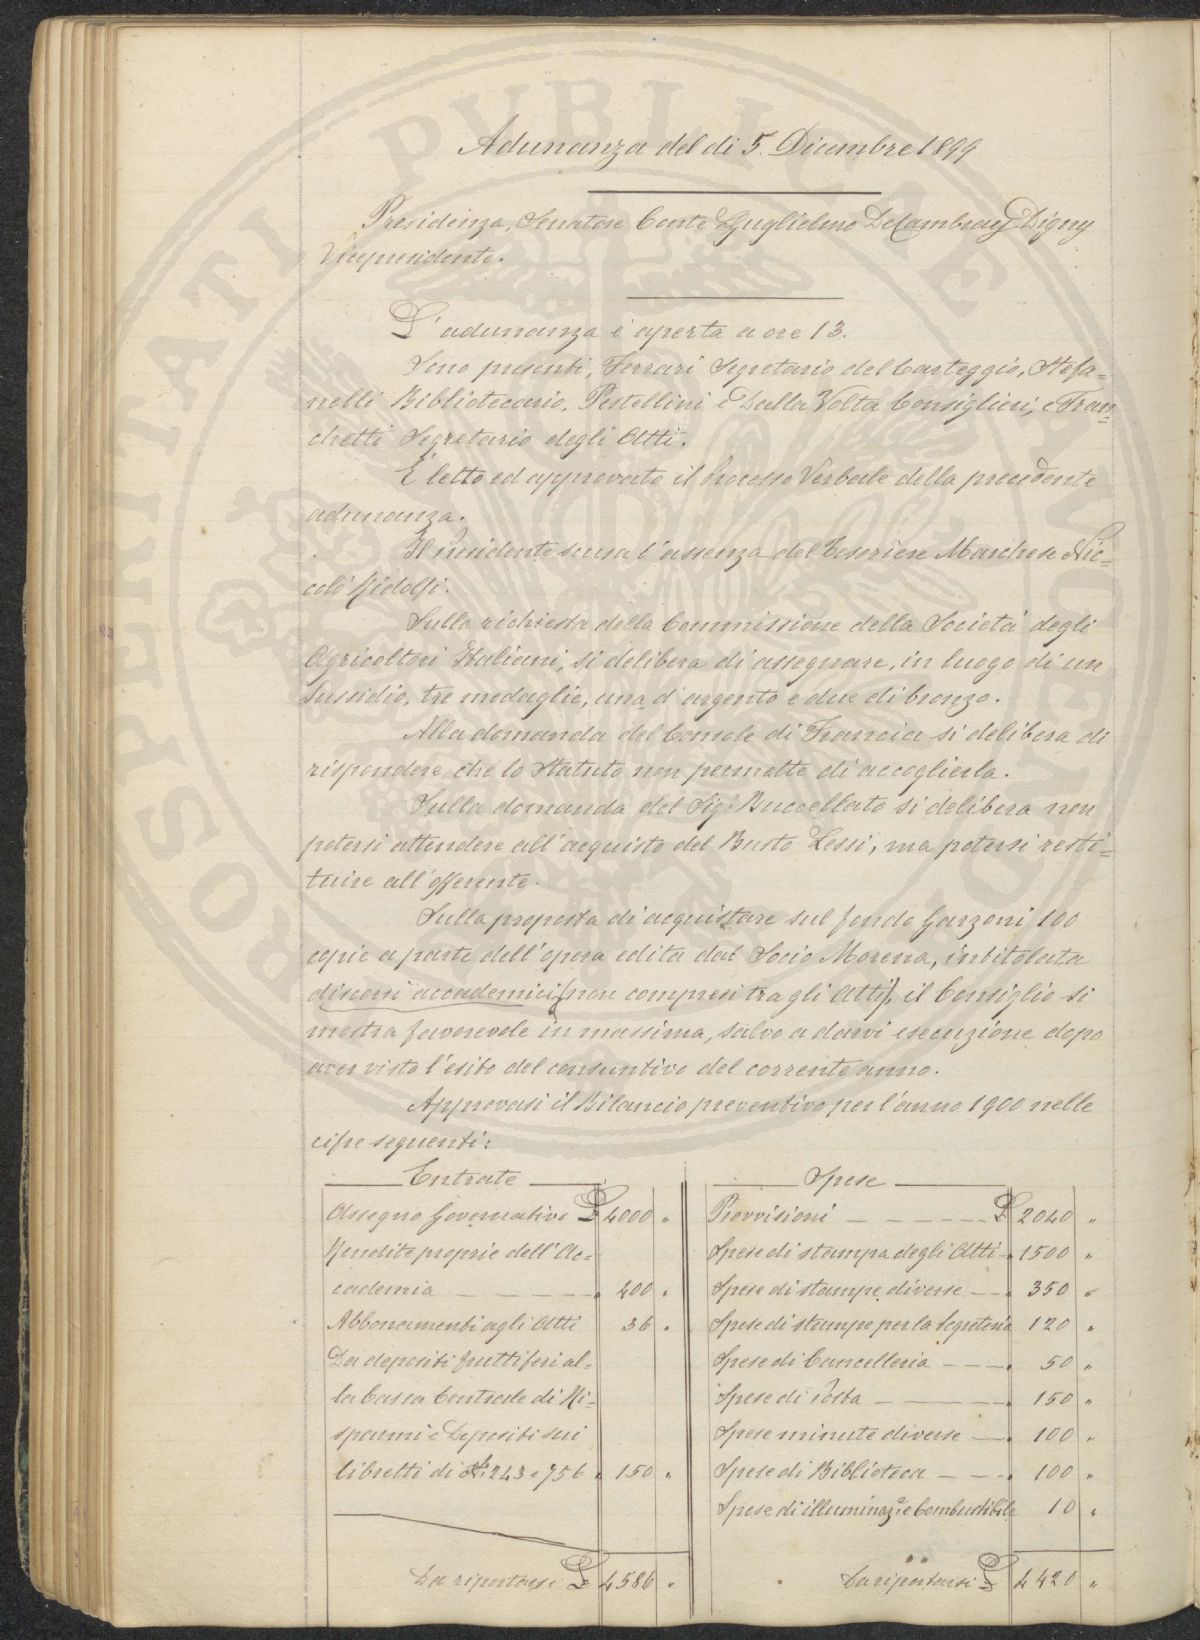 Adunanza del dì 5. Dicembre 1899
Presidenza, Senatore Conte Guglielmo DeCambray Digny
Vicepresidente.
L'adunanza è aperta a ore 13.
Sono presenti, Ferrari Segretario del Carteggio, Stefa=
nelli Bibliotecario, Pestellini e Dalla Volta Consiglieri, e Fran=
chetti Segretario degli Atti.
È letto ed approvato il Processo Verbale della precedente
adunanza.
Il Presidente scusa l'assenza del Tesoriere Marchese Nic=
colò Ridolfi.
Sulla richiesta della Commissione della Società degli
Agricoltori Italiani, si delibera di assegnare, in luogo di un
Sussidio, tre medaglie, una d'argento e due di bronzo.
Alla domanda del Console di Francia si delibera di
rispondere che lo Statuto non permette di accoglierla.
Sulla domanda del Sig. Buccellato si delibera non
potersi attendere all'acquisto del Busto Lessi, ma potersi resti=
tuire all'offerente.
Sulla proposta di acquistare sul fondo Garzoni 100
copie a parte dell'opera edita dal Socio Morena, intitolata
discorsi accademici (non compresi tra gli Atti), il Consiglio si
mostra favorevole in massima, salvo a darvi esecuzione dopo
aver visto l'esito del consuntivo del corrente anno.
Approvasi il Bilancio preventivo per l'anno 1900 nelle
cifre seguenti:
Entrate
Assegno Governativo £ 4000 "
Rendite proprie dell'Ac=
cademia " 400 "
Abbonamenti agli Atti 36 "
Da depositi fruttiferi al=
la Cassa Centrale di Ri=
sparmi e Depositi sui
libretti di N.i 243 e 756 " 150 "
Da riportarsi £ 4586 "
Spese
Provvisioni £ 2040 "
Spese di stampa degli Atti " 1500 "
Spese di stampe diverse " 350 "
Spese di stampe per la Segreteria 120 "
Spese di Cancelleria " 50 "
Spese di Posta " 150 "
Spese minute diverse " 100 "
Spese di Biblioteca " 100 "
Spese di illuminaz.e e Combustibile 10 "
Da riportarsi £ 4420 "
PROSPERITATI PVBLICAE AVGENDAE